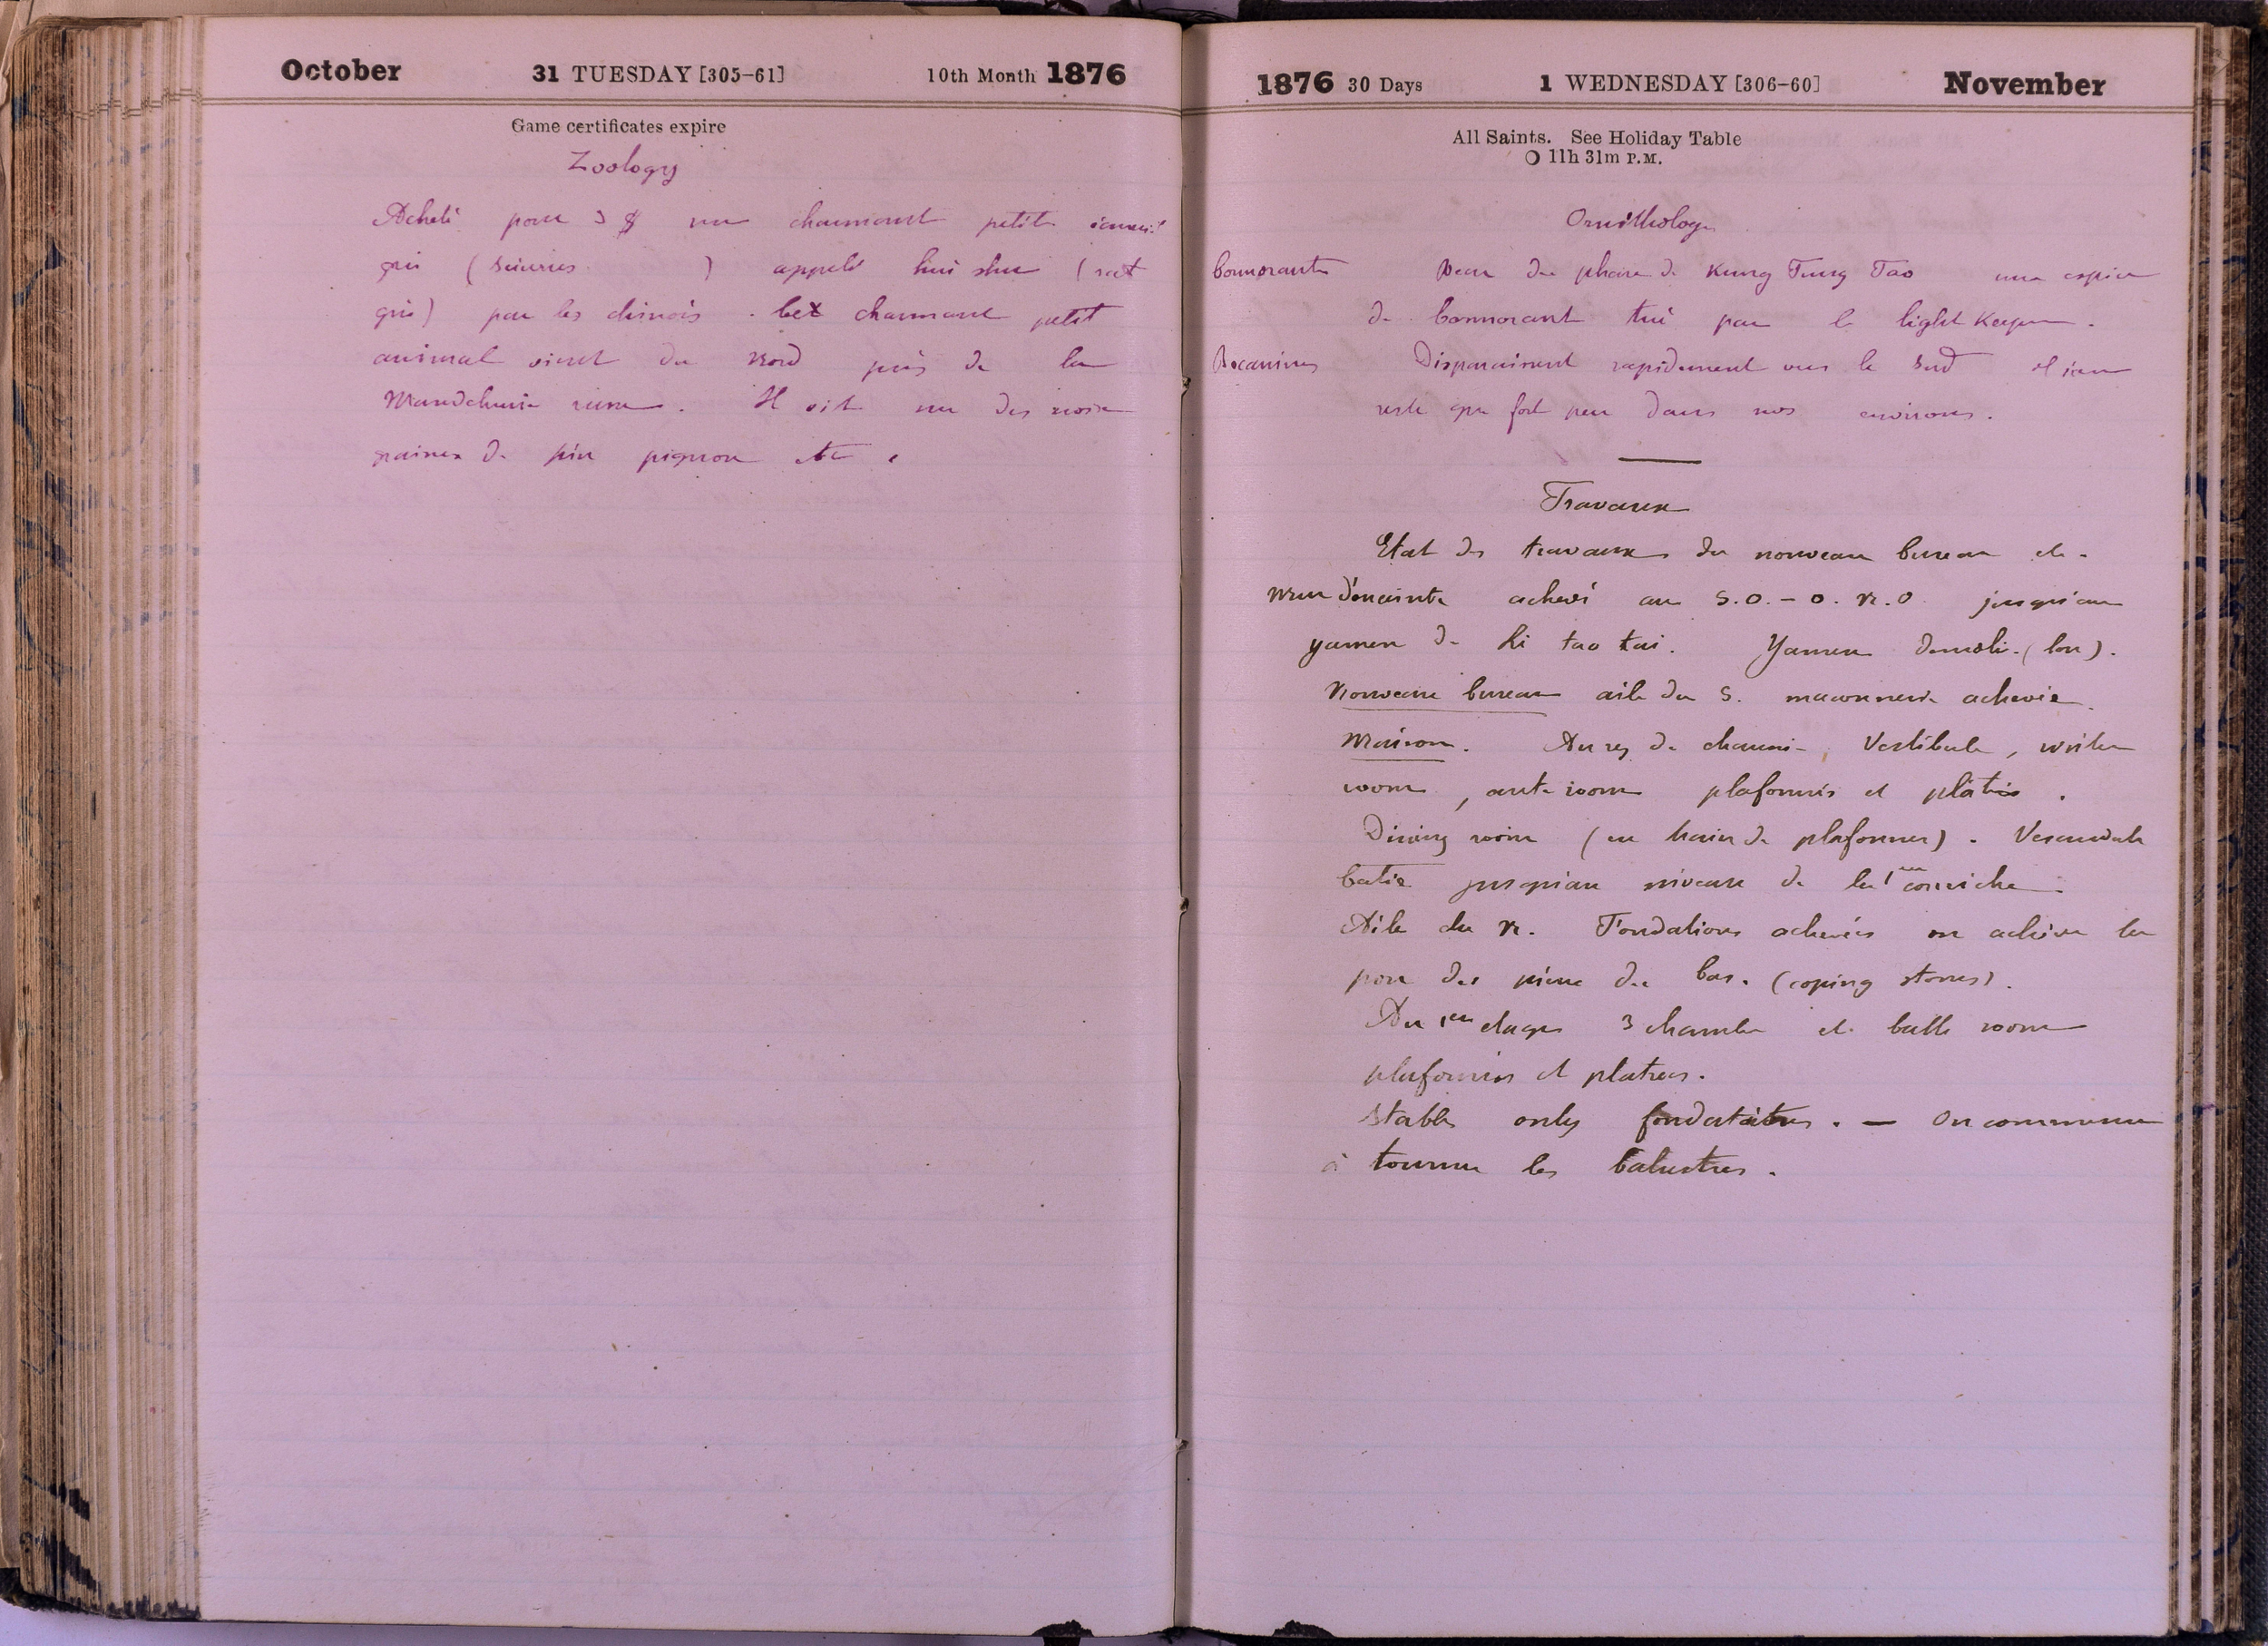 October 31 TUESDAY [305-61] 10th Month 1876
Game certificates expire
Zoology
Acheté pour 3 $ un charmant petit écureuil
gris (Sciurus ) appelé hui shu (rat
gris) par les chinois. Cet charmant petit
animal vient du Nord près de la
Mandchurie russe. Il vit des noix
graines de pin pignon etc.
1876 30 Days 1 WEDNESDAY [306-60] November
All Saints. See Holiday Table
O 11h 31m P.M.
Ornithology
Cormorants du phare de Kung Tung Tao une espèce
de Cormorant tué par le light Keeper.
Bécassines Disparaissent rapidement vers le Sud et
reste que fort peu dans nos environs.
Travaux
Etat des travaux du nouveau bureau etc.
Mur d'enceinte achevé au S.O. - O. N.O. jusqu'au
yamen de Li tao tai. Yamen demoli.
Nouveau bureau aile du S. maconnerie achevée.
Maison. Au rez de chaussée, Vestibule, writer
room, ante room plafonnés et plâtrés.
Dining room (en train de plafonner). Verandah
batie jusqu'au niveau de la 1ere corniche.
Aile du N. Fondations achevées on achève la
pose des pierres du bas. (coping stones).
Au 1er etage 3 chambres et bath room
plafonnés et platrees.
Stables only fondations. - On commence
à tourner les balustres.